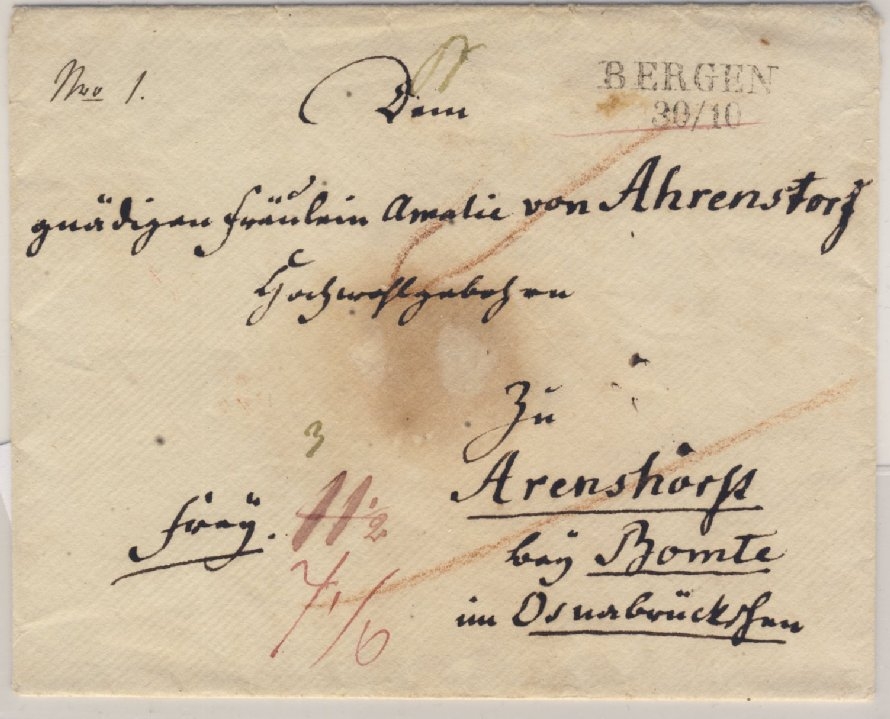 Nro 1.
BERGEN
30/10
Dem
gnädigen Fräulein Amalie von Ahrenstorf
Hochwohlgebohren
Zu
3
Arenshorst
Frey. 11 1/2
bey Bomte
7/6
im Osnabrückschen